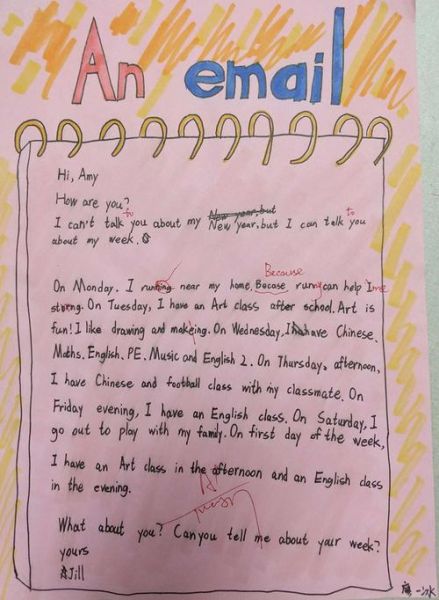 An email
Hi, Amy
How are you?
to to
I can't talk you about my New year, but I can talk you
about my week.
Because
On Monday. I near my home. Becase runny can help I me
strong. On Tuesday, I have an Art class after school. Art is
fun! I like drawing and making. On Wednesday, I have Chinese.
Maths. English. PE. Music and English 2. On Thursday, afternoon,
I have Chinese and football class with my classmate. On
Friday evening, I have an English class. On Saturday, I
go out to play with my family. On first day of the week,
I have an Art class in the afternoon and an English class
in the evening.
What about you? Can you tell me about your week?
yours
Jill